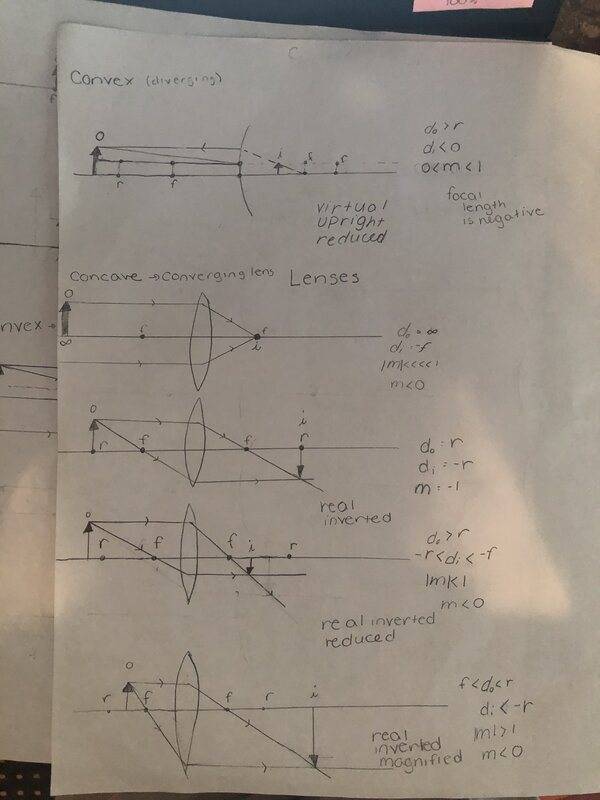 100%
C
Convex (diverging)
o
i
f
r
r
f
do > r
di < 0
0 < m < 1
virtual
upright
reduced
focal
length
is negative
Concave → Converging lens Lenses
o
nvex →
∞
f
f
i
do = ∞
di = -f
|m| <<<< 1
m < 0
o
i
r
f
f
r
do = r
di = -r
m = -1
real
inverted
o
r
f
f
i
r
do > r
-r < di < -f
|m| < 1
m < 0
real inverted
reduced
o
r
f
f
r
i
f < do < r
di < -r
|m| > 1
m < 0
real
inverted
magnified